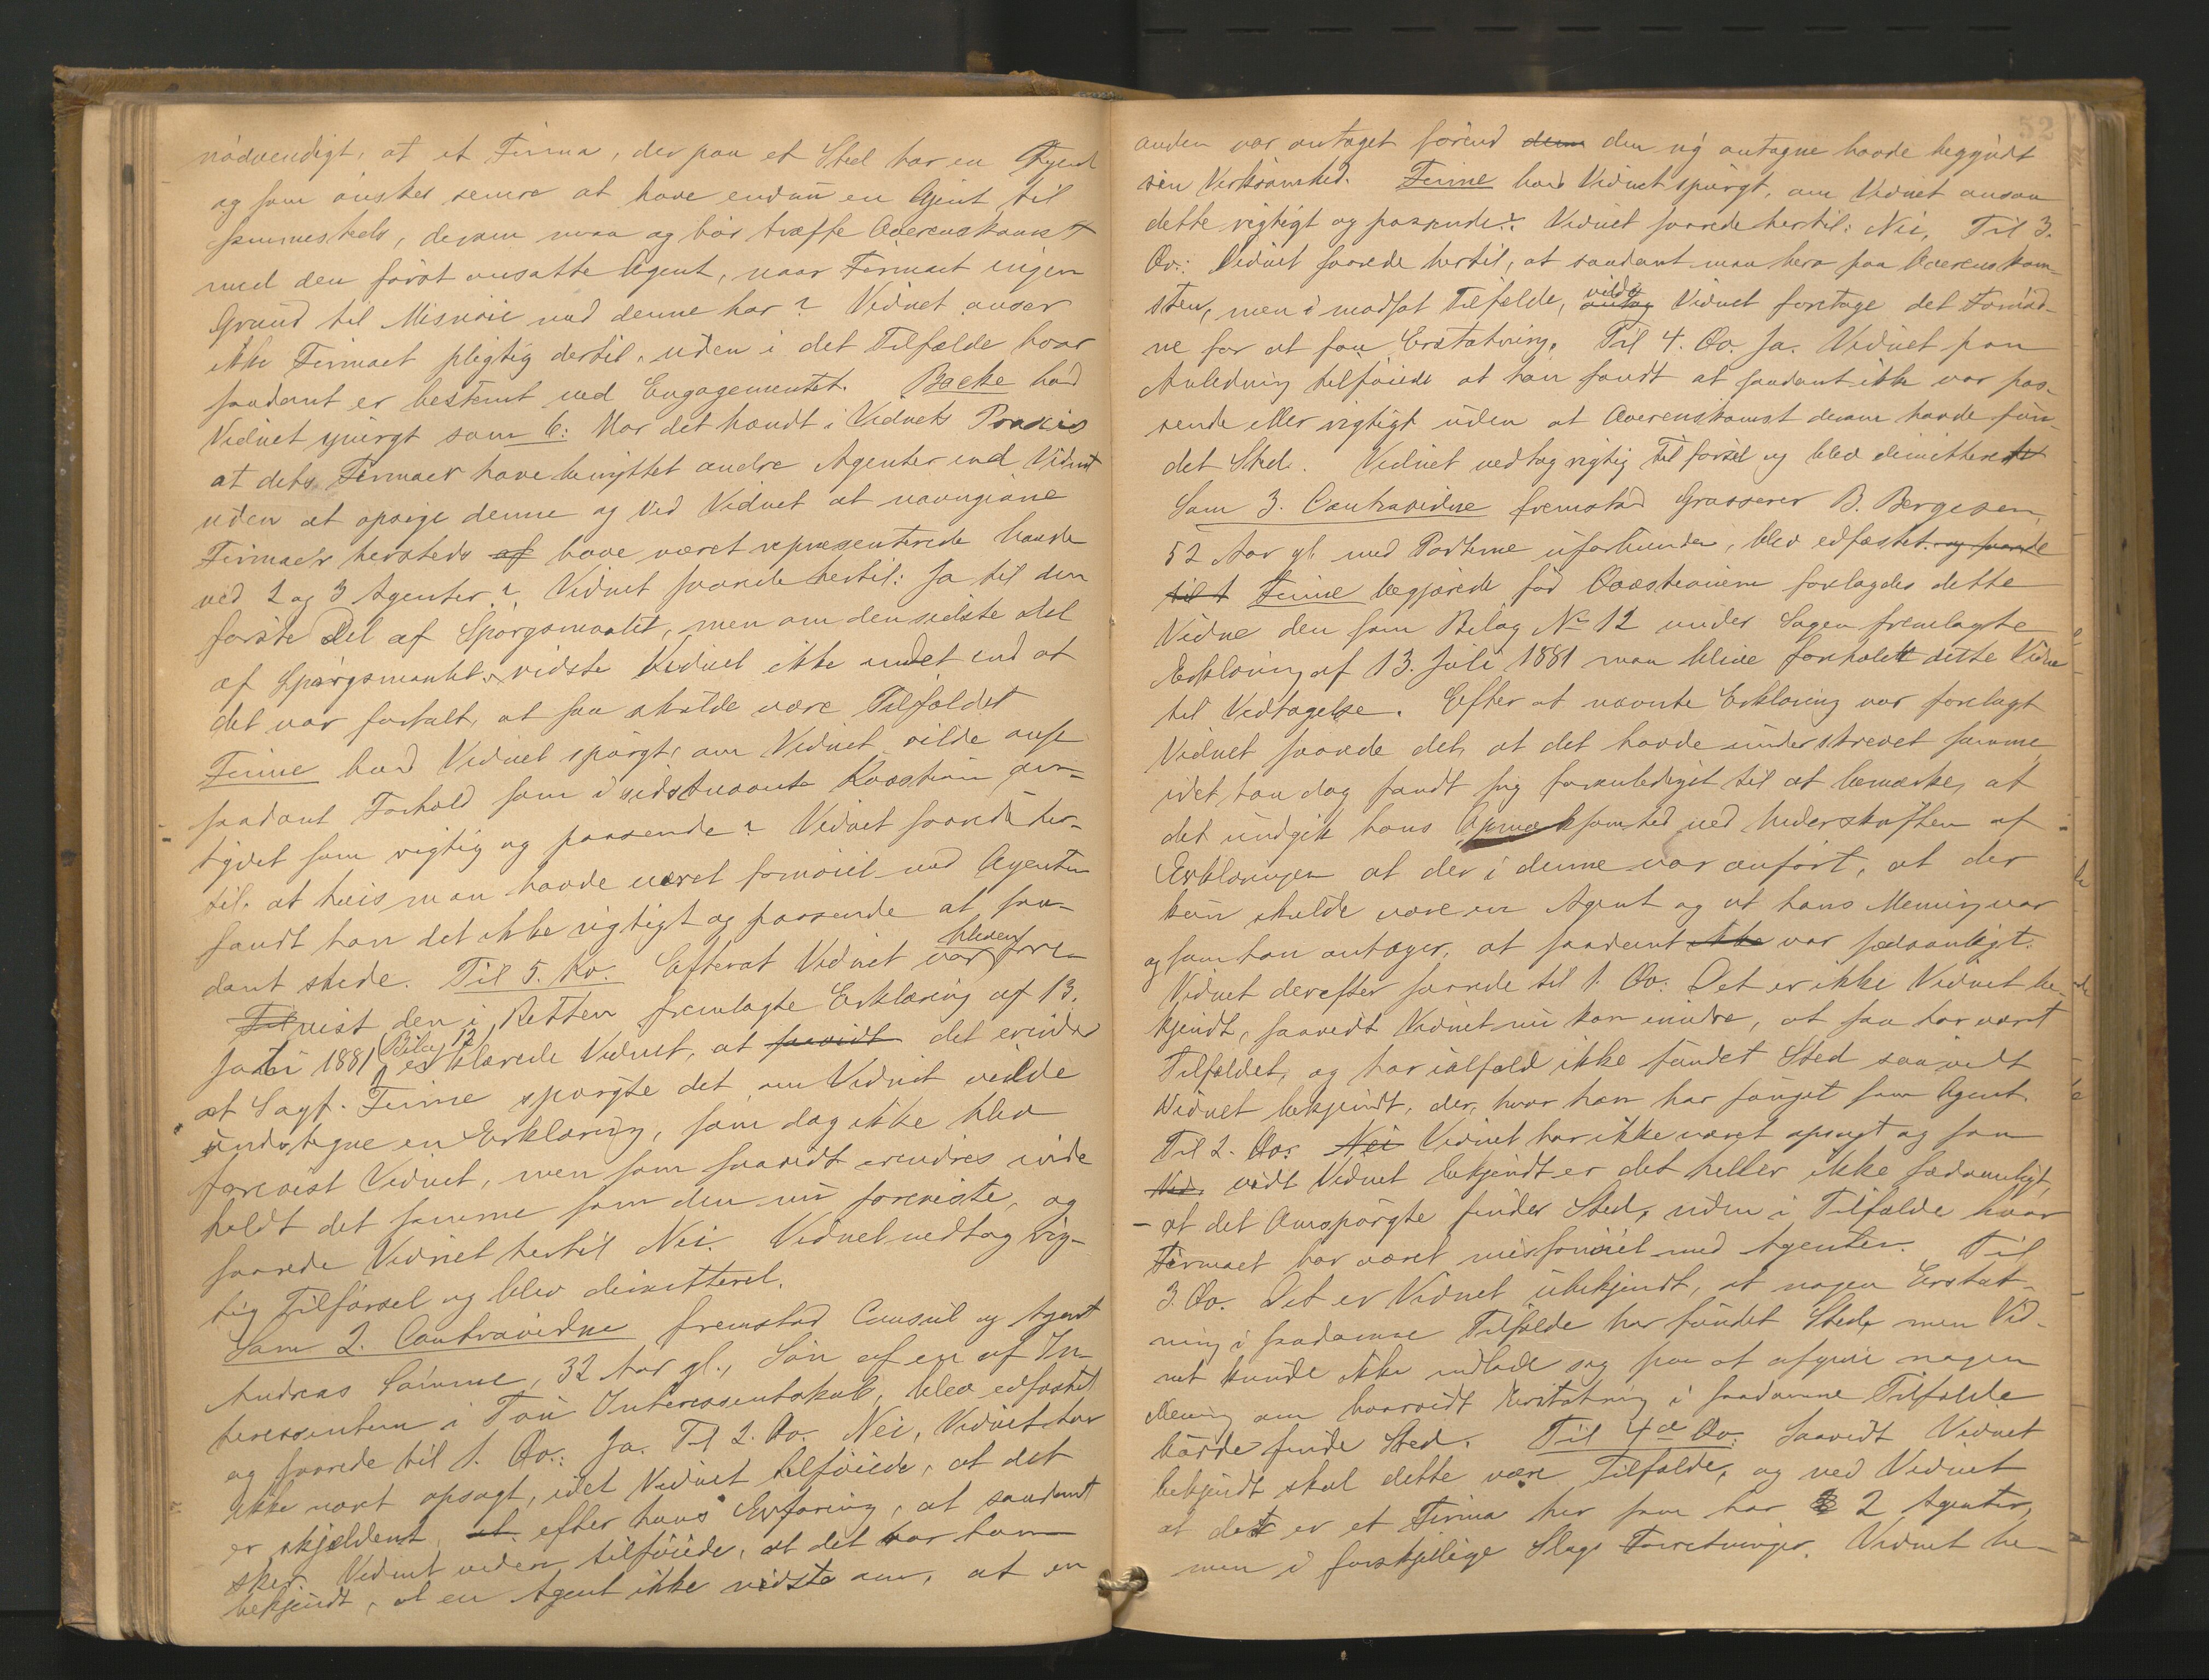 nødvendigt, at et Firma, der paa et Sted har en Agent
og som ønsker senere at have endnu en Agent til
sammesteds, derom maa og bør træffe Overenskomst
med den først ansatte Agent, naar Firmaet ingen
Grund til Misnøie med denne har? Vidnet anser
ikke Firmaet pligtig dertil, uden i det Tilfælde hvor
saadant er bestemt ved Engagementet. Backe bad
Vidnet spurgt som 6: Har det hændt i Vidnets Praxis
at dets Firmaer have benyttet andre Agenter end Vidnet
uden at opsige denne og ved Vidnet at navngivne
Firmaer hersteds af have været repræsenterede havde
ved 2 og 3 Agenter? Vidnet svarede hertil: Ja til den
første Del af Spørgsmaalet, men om den sidste del
af Spørgsmaalet vidste Vidnet ikke andet end at
det var fortalt, at saa skulde være Tilfældet
Finne bad Vidnet spørgt, om Vidnet vilde anse
saadant Forhold som i sidstnævnte Kvæstion
tydet som rigtig og passende? Vidnet svarede her-
til, at hvis man havde været fornøiet med Agenten
fandt han det ikke rigtigt og passende at saa-
dant skede. Til 5. Kv. Efterat Vidnet var bleven fore-
Til vist den i Retten fremlagte Erklæring af 13.
Juli 1881 (Bilag 12) erklærede Vidnet, at saavidt det erindrer
at Sagf. Finne spørgte det om Vidnet vilde
undertegne en Erklæring, som dog ikke blev
forevist Vidnet, men som saavidt erindres inde
holdt det samme som den nu foreviste, og
svarede Vidnet hertil Nei. Vidnet vedtog rig-
tig Tilførsel og blev dimitteret.
Som 2. Contravidne fremstod Consul og Agent
Andreas Sømme, 32 Aar gl., Søn af en af In-
teressenterne i Tou Interessentskab, blev edfæstet
og svarede til 1. Qv.: Ja. Til 2. Qv. Nei, Vidnet har
ikke vært opsagt, idet Vidnet tilføiede, at det
er skjeldent, at efter hans Erfaring, at saadant
sker. Vidnet videre tilføiede, at det var ham
bekjendt, at en Agent ikke vidste om, at en
52
anden var antaget førend dem den ny antagne havde begyndt
sin Virksomhed. Finne bad Vidnet spørgt, om Vidnet ansaa
dette rigtigt og passende? Vidnet svarede hertil: Nei, Til 3.
Qv: Vidnet svarede hertil, at saadant maa bero paa Overenskom-
sten, men i modsat Tilfælde, vilde Vidnet foretage det Fornød-
ne for at faa Erstatning. Til 4. Qv. Ja. Vidnet paa
Anledning tilføiede at han fandt at saadant ikke var pas-
sende eller rigtigt uden at Overenskomst derom havde fun-
det Sted. Vidnet vedtog rigtig Tilførsel og blev dimitteret
Som 3. Contravidne fremstod Grosserer B. Bergesen,
52 Aar gl. med Parterne uforbunden, blev edfæstet og svarede
til 1 Finne begjærede før Qvæstionerne forlagdes dette
Vidne den som Bilag No 12 under Sagen fremlagte
Erklæring af 13. Juli 1881 maa blive forholdt dette Vidne
til Vedtagelse. Efter at nævnte Erklæring var forelagt
Vidnet svarede det, at det havde underskrevet samme,
idet han dog fandt sig foranlediget til at bemærke, at
det undgik hans Opmærksomhed ved Underskriften af
Erklæringen at der i denne var anført, at der
kun skulde være en Agent og at hans Mening var
og som han antager, at saadant ikke var sædvanligt.
Vidnet derefter svarede til 1. Qv: Det er ikke Vidnet be-
kjendt, saavidt Vidnet nu kan erindre, at saa har vært
Tilfældet, og har ialfald ikke fundet Sted saavidt
Vidnet bekjendt, der, hvor han har fungeret som Agent.
Til 2. Qv: Nei Vidnet har ikke været opsagt og saa
Vid. vidt Vidnet bekjendt er det heller ikke sædvanligt,
- at det Omspørgte finder Sted, uden i Tilfælde hvor
Firmaet har været misfornøiet med Agenten. Til
3. Qv. Det er Vidnet ubekjendt, at nogen Erstat-
ning i saadanne Tilfælde har fundet Sted, men Vid-
net kunde ikke indlade sig paa at afgive nogen
Mening om hvorvidt Erstatning i saadanne Tilfælde
burde finde Sted. Til 4de Qv: Saavidt Vidnet
bekjendt skal dette være Tilfælde, og ved Vidnet
at det er et Firma her som har 2 Agenter,
men i forskjellige Slags Forretninger. Vidnet be-